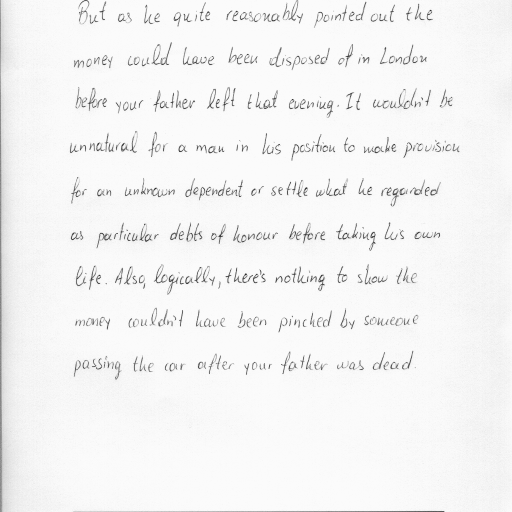 But as he quite reasonably pointed out the
money could have been disposed of in London
before your father left that evening. It wouldn't be
unnatural for a man in his position to make provision
for an unknown dependent or settle what he regarded
as particular debts of honour before taking his own
life. Also, logically, there's nothing to show the
money couldn't have been pinched by someone
passing the car after your father was dead.